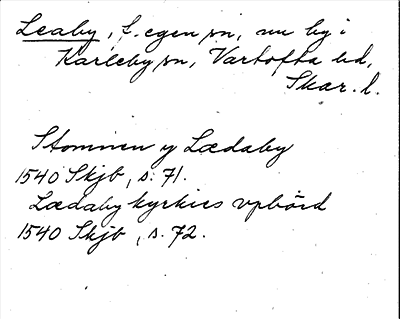 Leaby, f. egen sn, nu by i
Karleby sn, Vartofta hd,
Skar. l.
Stommen y Lædaby
1540 Skjb, s. 71.
Lædaby kyrkies vpbörd
1540 Skjb, s. 72.